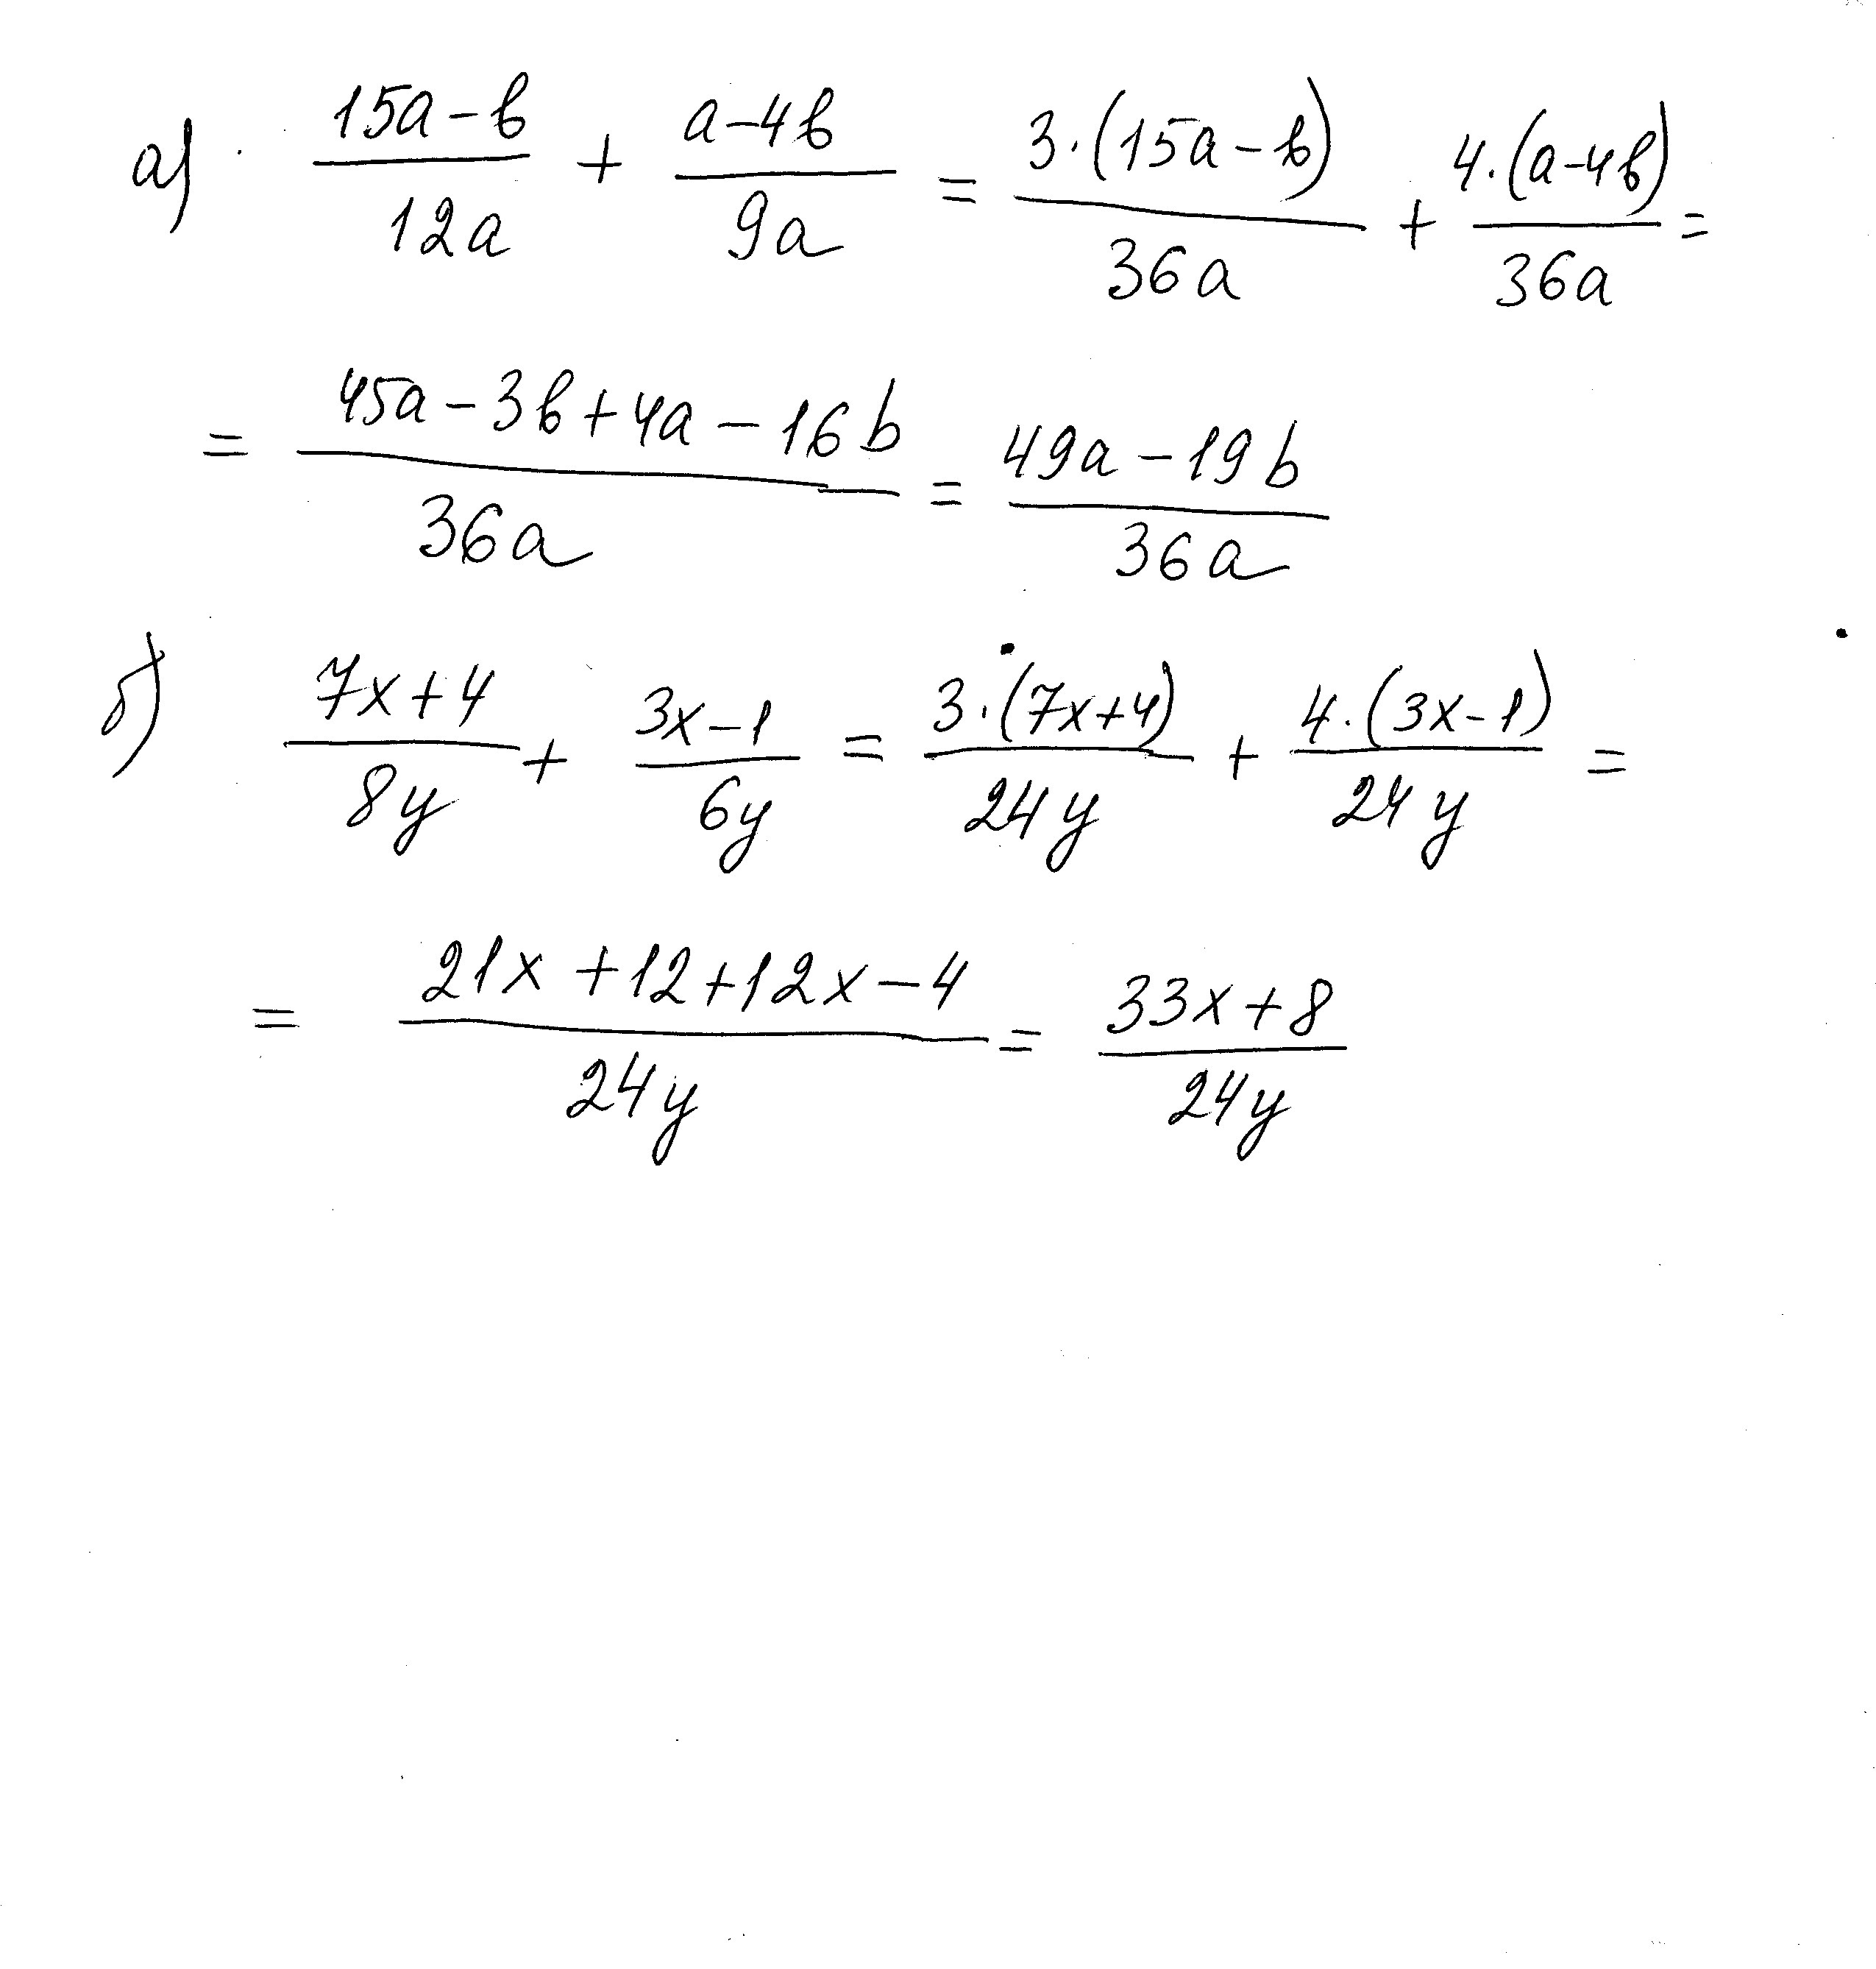 а) (15a-b)/(12a) + (a-4b)/(9a) = (3·(15a-b))/(36a) + (4·(a-4b))/(36a) =
= (45a-3b+4a-16b)/(36a) = (49a-19b)/(36a)
б) (7x+4)/(8y) + (3x-1)/(6y) = (3·(7x+4))/(24y) + (4·(3x-1))/(24y) =
= (21x+12+12x-4)/(24y) = (33x+8)/(24y)